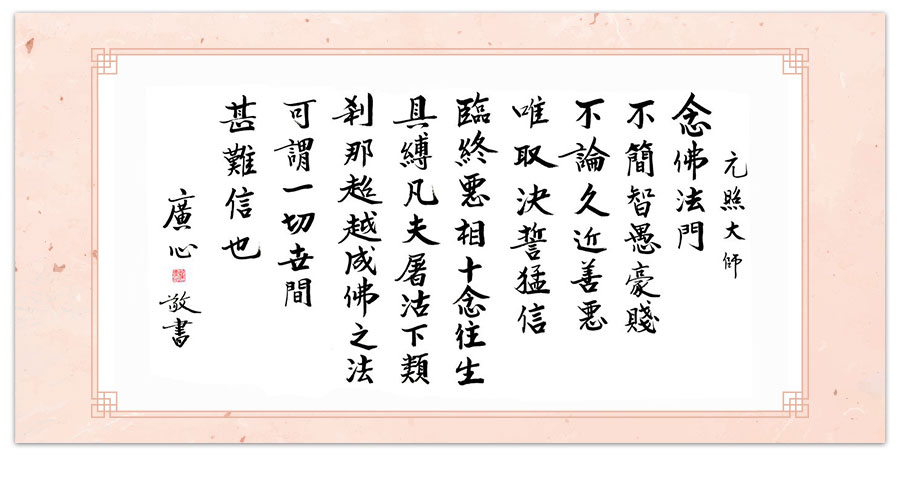 元照大師
念佛法門
不簡智愚豪賤
不論久近善惡
唯取決誓猛信
臨終惡相十念往生
具縛凡夫屠沽下類
刹那超越成佛之法
可謂一切世間
甚難信也
廣心
敬書